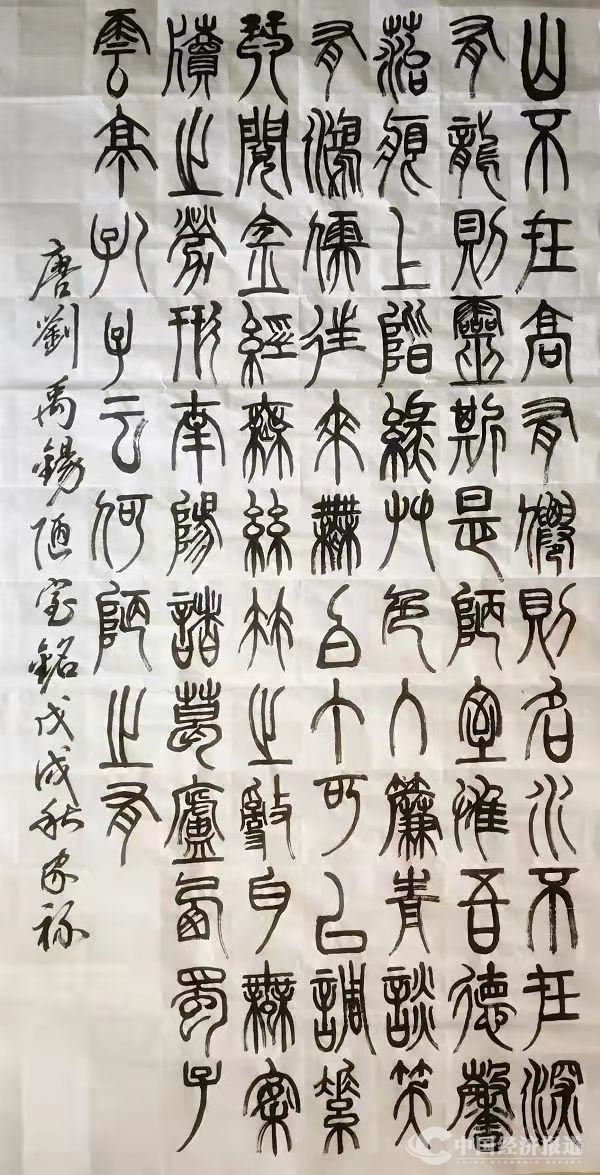 山不在高有僊則名水不在深
有龍則靈斯是陋室惟吾德馨
菭痕上階綠艸色入簾青談笑
有鴻儒往來無白丁可以調素
琴閱金經無絲竹之亂耳無案
牘之勞形南陽諸葛廬西蜀子
雲亭孔子云何陋之有
唐劉禹錫陋室銘戊戌秋家
中国经济报道